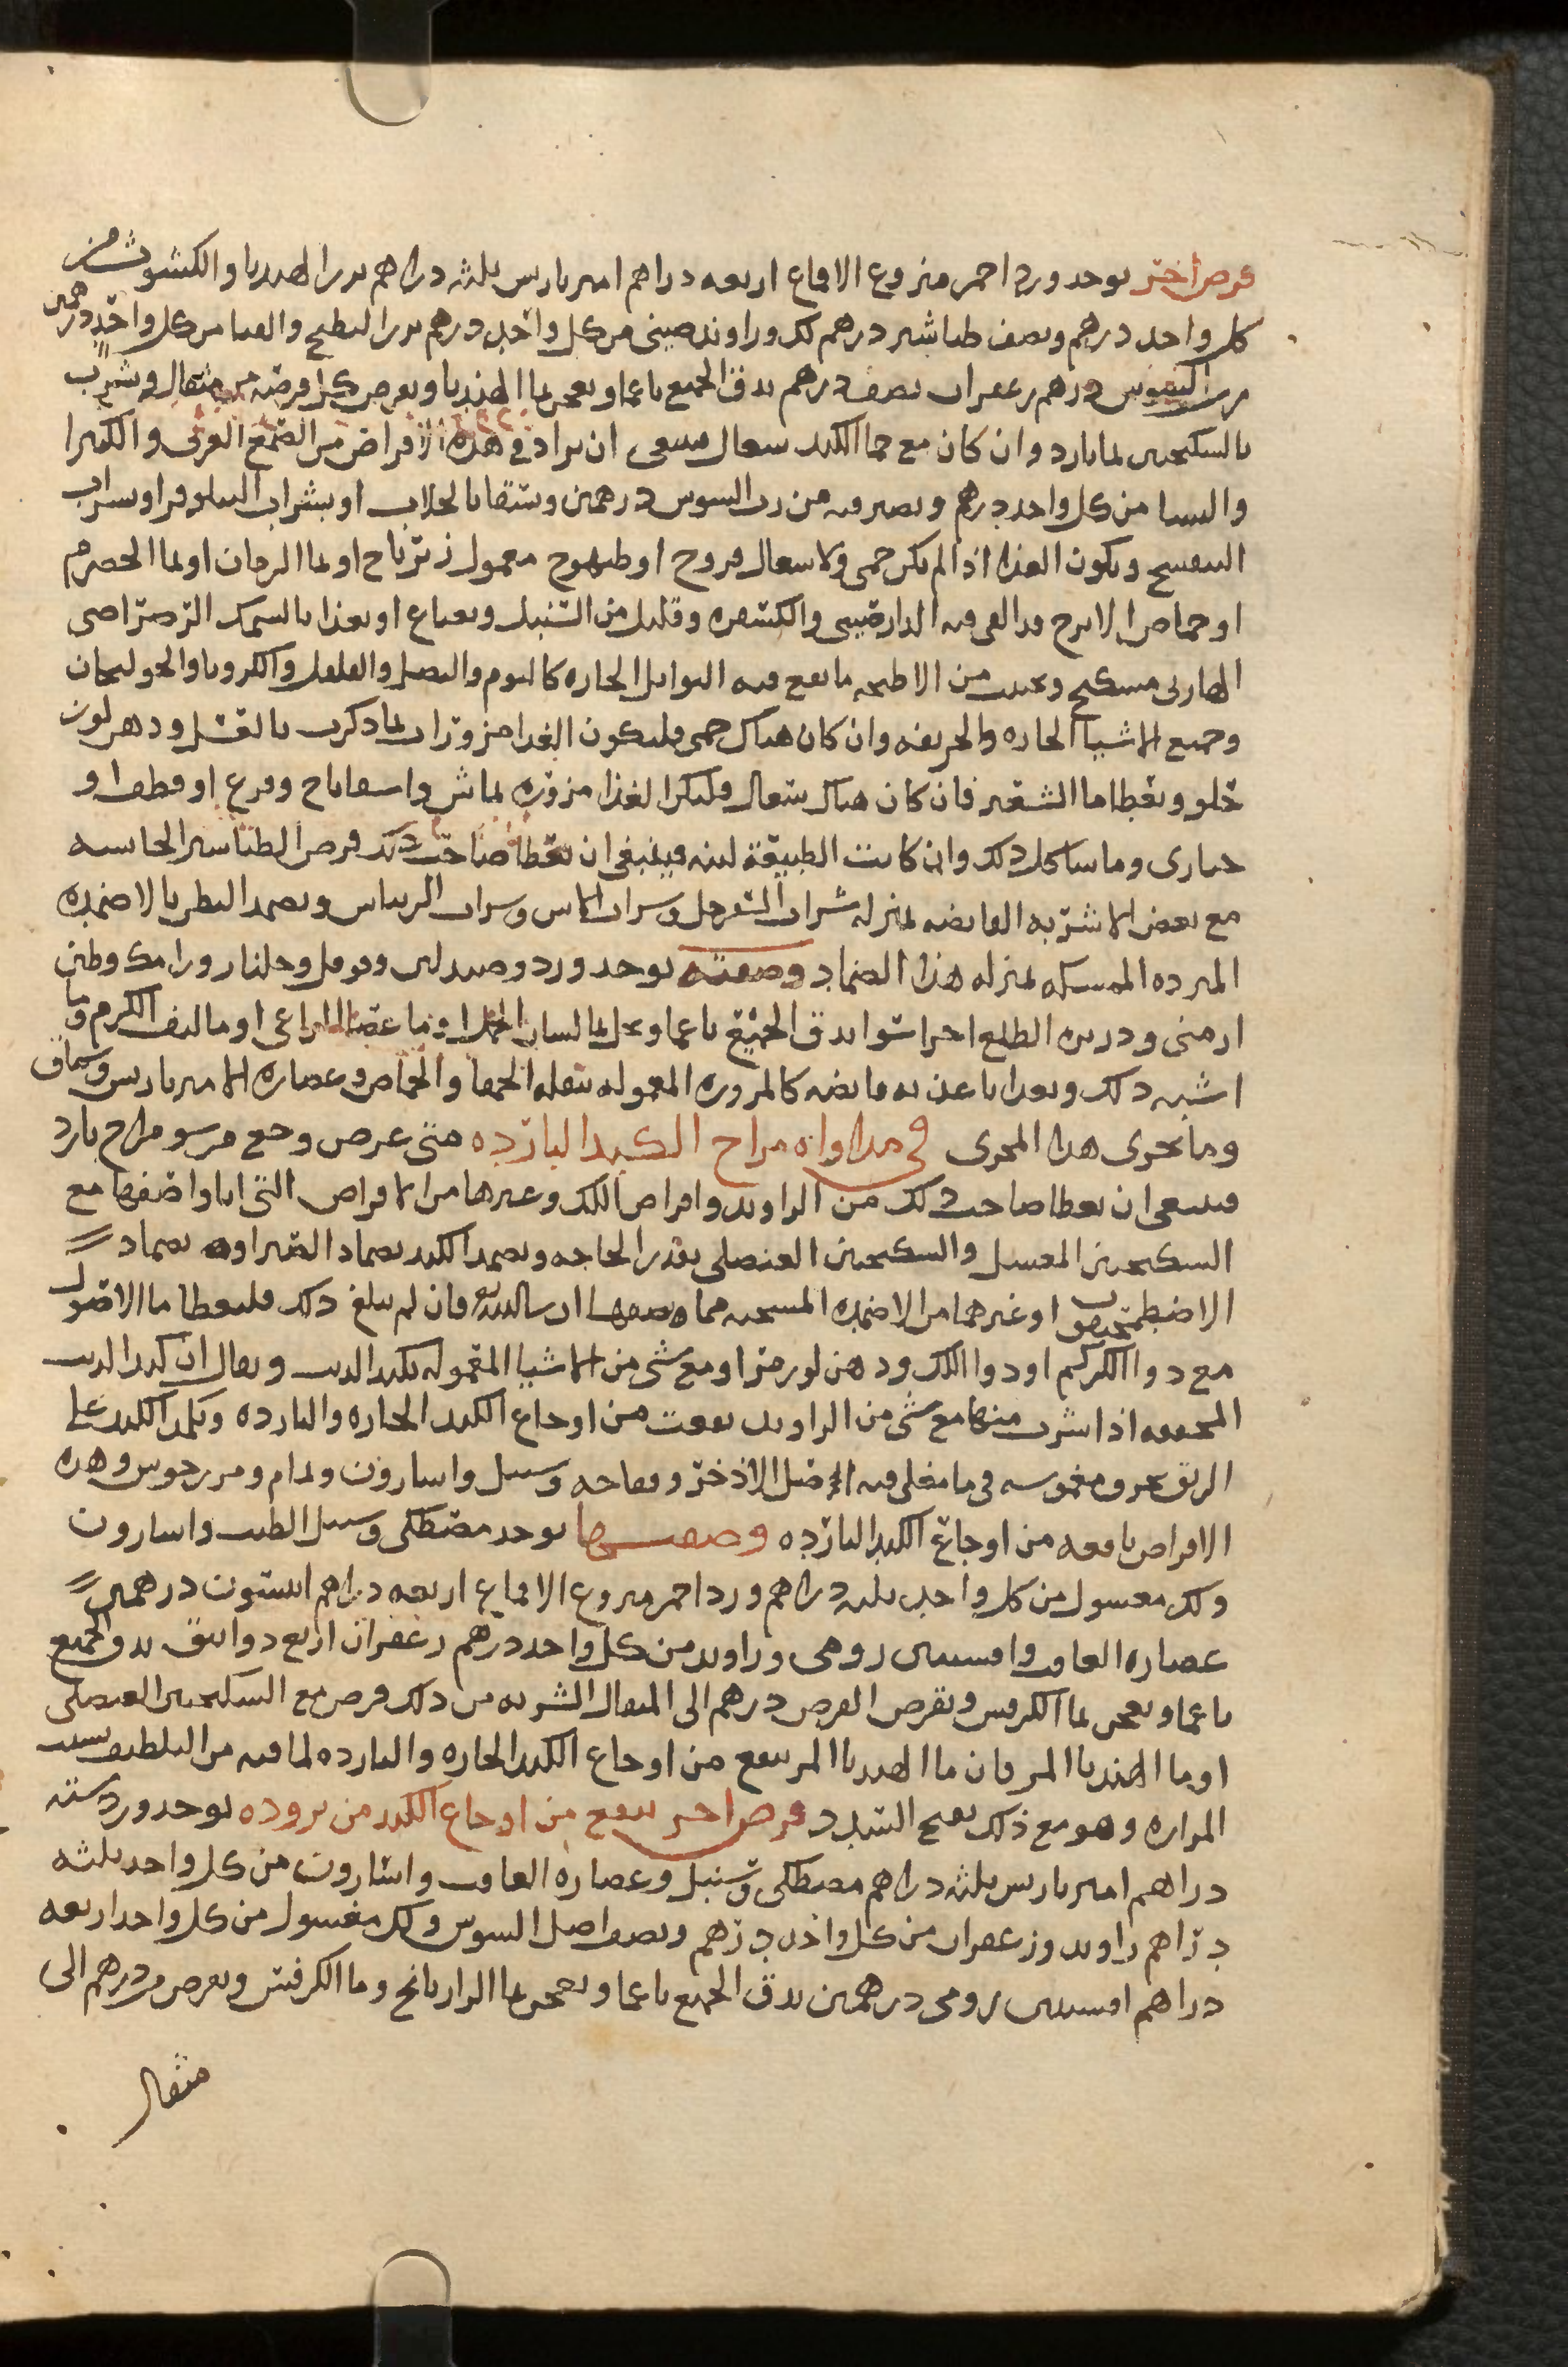 قرص اخر يوخد ورد احمر منزوع الاقماع اربعه دراهم امير باريس ثلثه دراهم بزر الهندبا والكشوث من
كل واحد درهم ونصف طباشير درهم لك وراوند صيني من كل واحد درهم بزر البطيخ والقثا من كل واحد درهمين
رب السوس درهم زعفران نصف درهم يدق الجميع ناعما ويعجن بما الهندبا ويقرص كل قرصه من مثقال ويشرب
بالسكنجبين بما بارد وان كان مع حما الكبد سعال فينبغي ان يزاد في هذه الاقراص من الصمغ العربي والكثيرا
والنشا من كل واحد درهم ويصير فيه من رب السوس درهمين ويسقا بالجلاب او بشراب النيلوفر او شراب
البنفسج ويكون الغذا اذا لم يكن حمى ولا سعال فروج او طيهوج معمول زيرباج او بما الرمان او بما الحصرم
او حماض الاترج قد القي فيه الدارصيني والكسفره وقليل من السنبل ونعناع او يغذا بالسمك الرضراضي
الهازبى مسكبج ويجنب من الاطعمه ما يقع فيه التوابل الحاره كالثوم والبصل والفلفل والكرويا والخولنجان
وجميع الاشيا الحاره والحريفه وان كان هناك حمى فليكون الغدا مزورات بما ذكرت بالقتل ودهن لوز
حلو ويعطا ما الشعير فان كان هناك سعال فليكن الغذا مزوره بماش واسفاناخ وقرع او قطف او
خبازى وما شاكل ذلك وان كانت الطبيعة لينه فينبغي ان يعطا صاحب ذلك قرص الطباشير الحابسه
مع بعض الاشربه القابضه بمنزله شراب السفرجل وشراب الاس وشراب الريباس ويضمد البطن بالاضمده
المبرده الممسكه بمنزله هذا الضماد وصفته يوخد ورد وصندلين وفوفل وجلنار ورامك وطين
ارمنى ودريره الطلع اجزا سوا يدق الجميع ناعما ويحل بما لسان الحمل او ما عصا الراعي او ما ليف الكرم وما
اشبه ذلك ويغدا باغذيه قابضه كالمزوره المعموله ببقله الحمقا والحماض وعصاره الامير باريس وسماق
وما يجرى هذا المجرى في مداواه مزاج الكبد البارده متى عرض وجع من سو مزاج بارد
فينبغي ان يعطا صاحب ذلك من الراوند واقراص اللك وغيرها من الاقراص التي انا واصفها مع
السكنجبين المعسل والسكنجبين العنصلي بقدر الحاجه ويضمد الكبد بضماد الصبر او بضماد
الاصطمخيقون او غيرهما من الاضمده المسخنه مما وصفها فان لم يبلغ ذلك فليعطا ما الاصول
مع دوا الكركم او دوا اللك ودهن لوز مر او مع شي من الاشيا المعموله بكبد الديب ويقال ان كبد الديب
المجففه اذا شرب منها مع شي من الراوند نفعت من اوجاع الكبد الحاره والبارده وتكمد الكبد على
الريق بخرق مغموسه في ما مغلى فيه اصل الاذخر وفقاحه وسنبل واسارون ونمام ومرزنجوش وهذه
الاقراص نافعه من اوجاع الكبد البارده وصفتها يوخد مصطكى وسنبل الطيب واسارون
ولك مغسول من كل واحد ثلثه دراهم ورد احمر منزوع الاقماع اربعه دراهم انيسون درهمين
عصاره الغافت وافسنتين رومى وراوند من كل واحد درهم زعفران اربع دوانيق يدق الجميع
ناعما ويعجن بما الكرفس ويقرص القرص درهم الى المثقال الشربه من ذلك قرص مع السكنجبين العنصلي
او ما الهندبا المر فان ما الهندبا المر ينفع من اوجاع الكبد الحاره والبارده لما فيه من التلطيف بسبب
المراره وهو مع ذلك يفتح السدد قرص اخر ينفع من اوجاع الكبد من بروده يوخد ورد سته
دراهم امير باريس ثلثه دراهم مصطكى وسنبل وعصاره الغافت واسارون من كل واحد ثلثه
دراهم راوند وزعفران من كل واحد درهم ونصف اصل السوس ولك مغسول من كل واحد اربعه
دراهم افسنتين رومى درهمين يدق الجميع ناعما ويعجن بما الرازيانج وما الكرفس ويقرص من درهم الى
مثقال